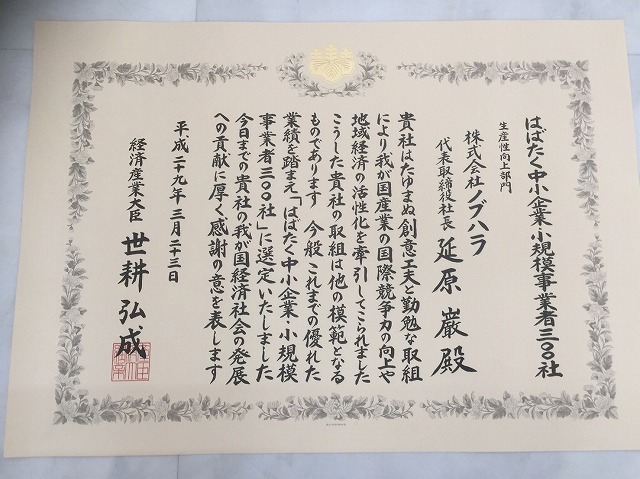 はばたく中小企業・小規模事業者三〇〇社
生産性向上部門
株式会社ノブハラ
代表取締役社長 延原 巖 殿
貴社はたゆまぬ創意工夫と勤勉な取組
により我が国産業の国際競争力の向上や
地域経済の活性化を牽引してこられました
こうした貴社の取組は他の模範となる
ものであります 今般 これまでの優れた
業績を踏まえ「はばたく中小企業・小規模
事業者三〇〇社」に選定いたしました
今日までの貴社の我が国経済社会の発展
への貢献に厚く感謝の意を表します
平成二十九年 三月 二十三日
経済産業大臣 世耕 弘成